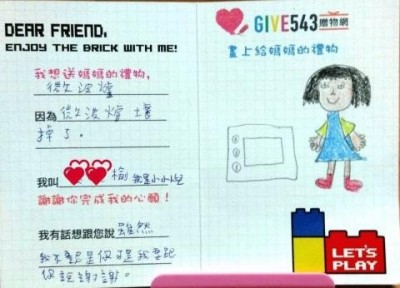 DEAR FRIEND,
ENJOY THE BRICK WITH ME!
我想送媽媽的禮物,
微波爐
因為 微波爐 壞
掉了。
我叫 榆
謝謝你完成我的心願!
我有話想跟您說 雖然
我不 是你可是我要跟
你說謝謝。
GIVE543 贈物網
畫上給媽媽的禮物
LET'S
PLAY